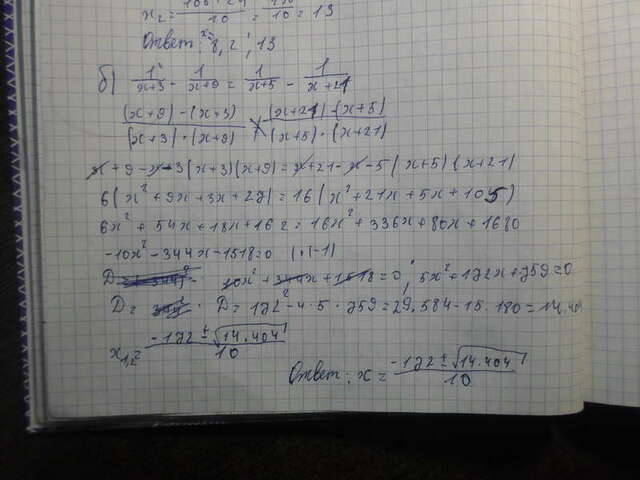 x₂ = = = 13
Ответ: 8,2 ; 13
б) 1/(x+3) - 1/(x+9) = 1/(x+5) - 1/(x+21)
(x+9)-(x+3)/(x+3)·(x+9) (x+21)-(x+5)/(x+5)·(x+21)
x+9-x-3(x+3)(x+9)=x+21-x-5(x+5)(x+21)
6(x²+9x+3x+27)=16(x²+21x+5x+105)
6x²+54x+18x+162=16x²+336x+80x+1680
-10x²-344x-1518=0 |·(-1)
10x²+344x+1518=0; 5x²+172x+759=0
D= D=172²-4·5·759=29.584-15.180=14.404
x₁,₂= -172±√14.404/10
Ответ: x= -172±√14.404/10